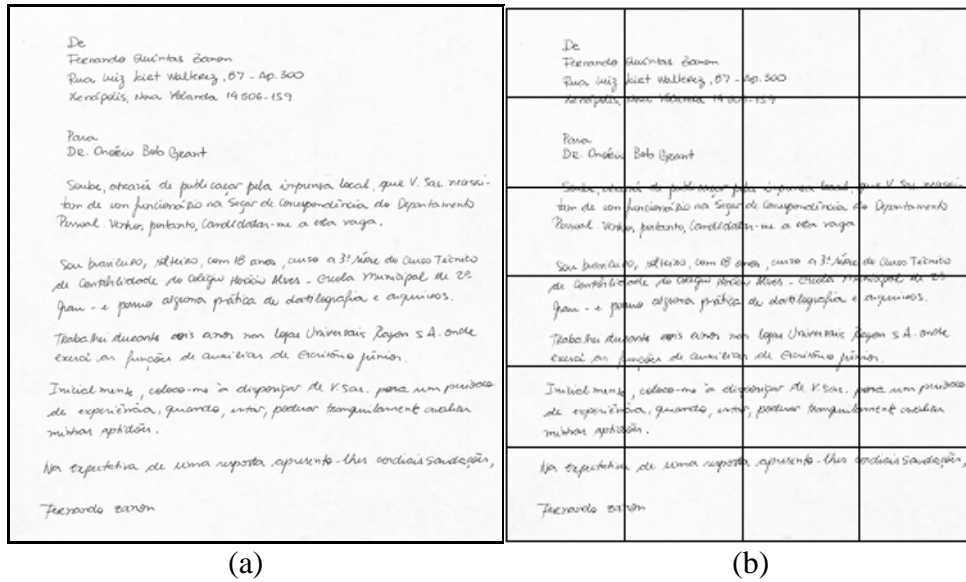 De
Fernando Quintas Zanon
Rua Luiz Kiet Walterez, 87 - Ap. 300
Xenópolis, Nova Yolanda 14506-159
Para
DR. Onório Bob Grant
Soube, através de publicaçar pela imprensa local, que V. Sas. necessi-
tam de um funcionário na Seçar de Correspondência do Departamento
Pessoal. Venho, portanto, candidatar-me a esta vaga.
Sou brasileiro, solteiro, com 18 anos, curso a 3ª série do Curso Técnico
de Contabilidade do Colégio Horácio Alves - Escola Municipal de 2º
Grau - e possuo alguma prática de datilografia e arquivos.
Trabalhei durante dois anos nas Universais Rayon S.A. onde
exerci as funções de auxiliar de Escritório júnior.
Inicialmente, coloco-me à disposiçar de V. Sas. para um período
de experiência, quando, entar, poderar tranquilamente avaliar
minhas aptidões.
Na expectativa de uma resposta apresento-lhes cordiais Saudações,
Fernando Zanon
(a)
De
Fernando Quintas Zanon
Rua Luiz Kiet Walterez, 87 - Ap. 300
Xenópolis, Nova Yolanda 14506-159
Para
DR. Onório Bob Grant
Soube, através de publicaçar pela imprensa local, que V. Sas. necessi-
tam de um funcionário na Seçar de Correspondência do Departamento
Pessoal. Venho, portanto, candidatar-me a esta vaga.
Sou brasileiro, solteiro, com 18 anos, curso a 3ª série do Curso Técnico
de Contabilidade do Colégio Horácio Alves - Escola Municipal de 2º
Grau - e possuo alguma prática de datilografia e arquivos.
Trabalhei durante dois anos nas Universais Rayon S.A. onde
exerci as funções de auxiliar de Escritório júnior.
Inicialmente, coloco-me à disposiçar de V. Sas. para um período
de experiência, quando, entar, poderar tranquilamente avaliar
minhas aptidões.
Na expectativa de uma resposta apresento-lhes cordiais Saudações,
Fernando Zanon
(b)